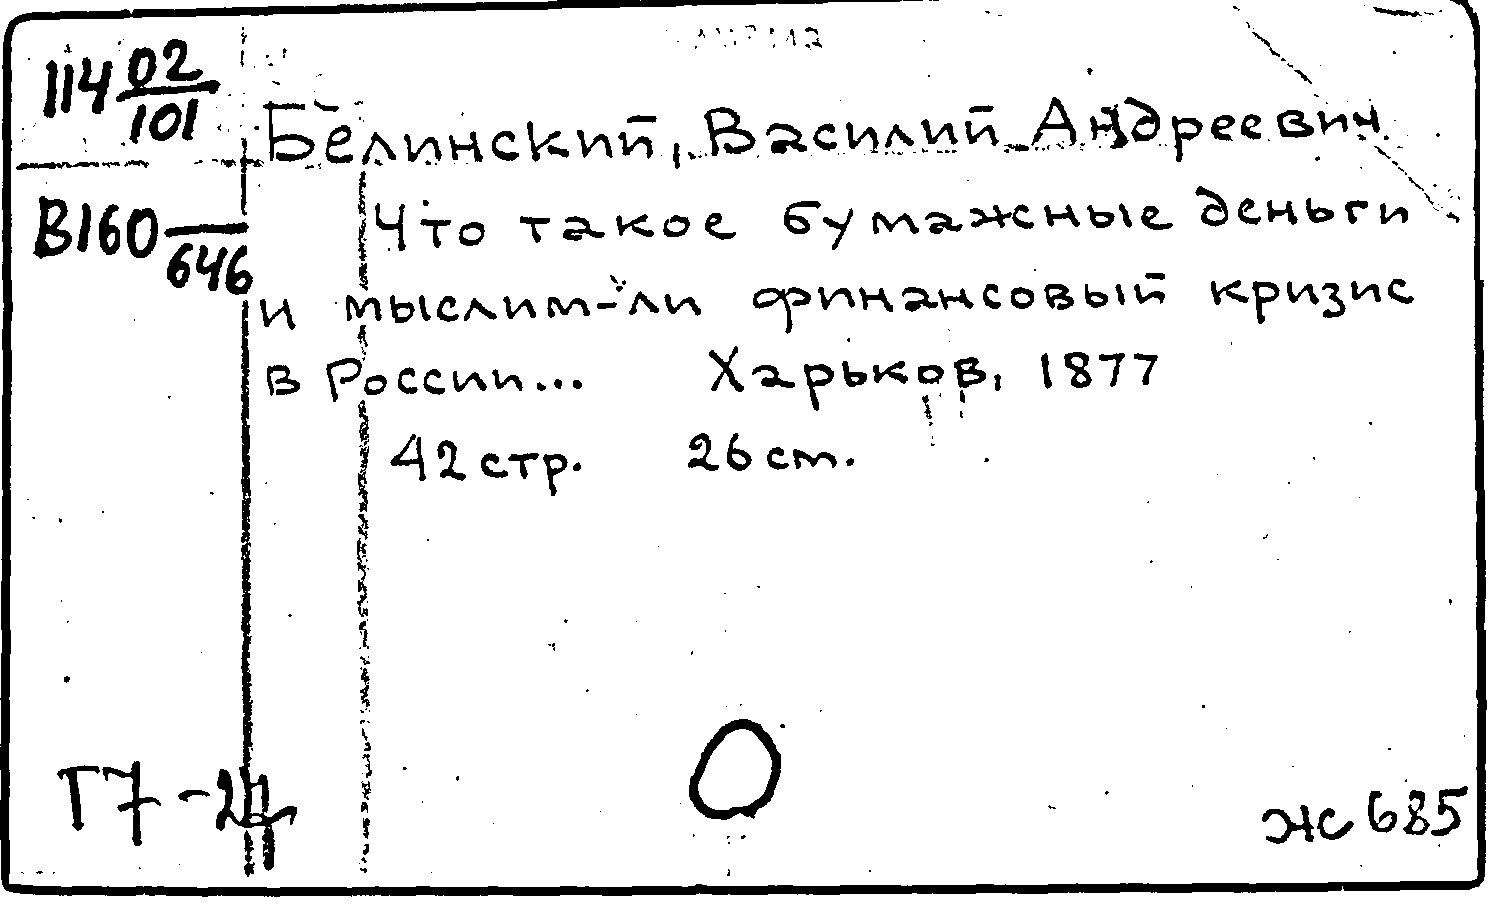 114 02/101
Белинский, Василий Андреевич
В160 —/646
Что такое бумажные деньги
и мыслим-ли финансовый кризис
в России... Харьков, 1877
42 стр. 26 см.
Г7-24
ж 685